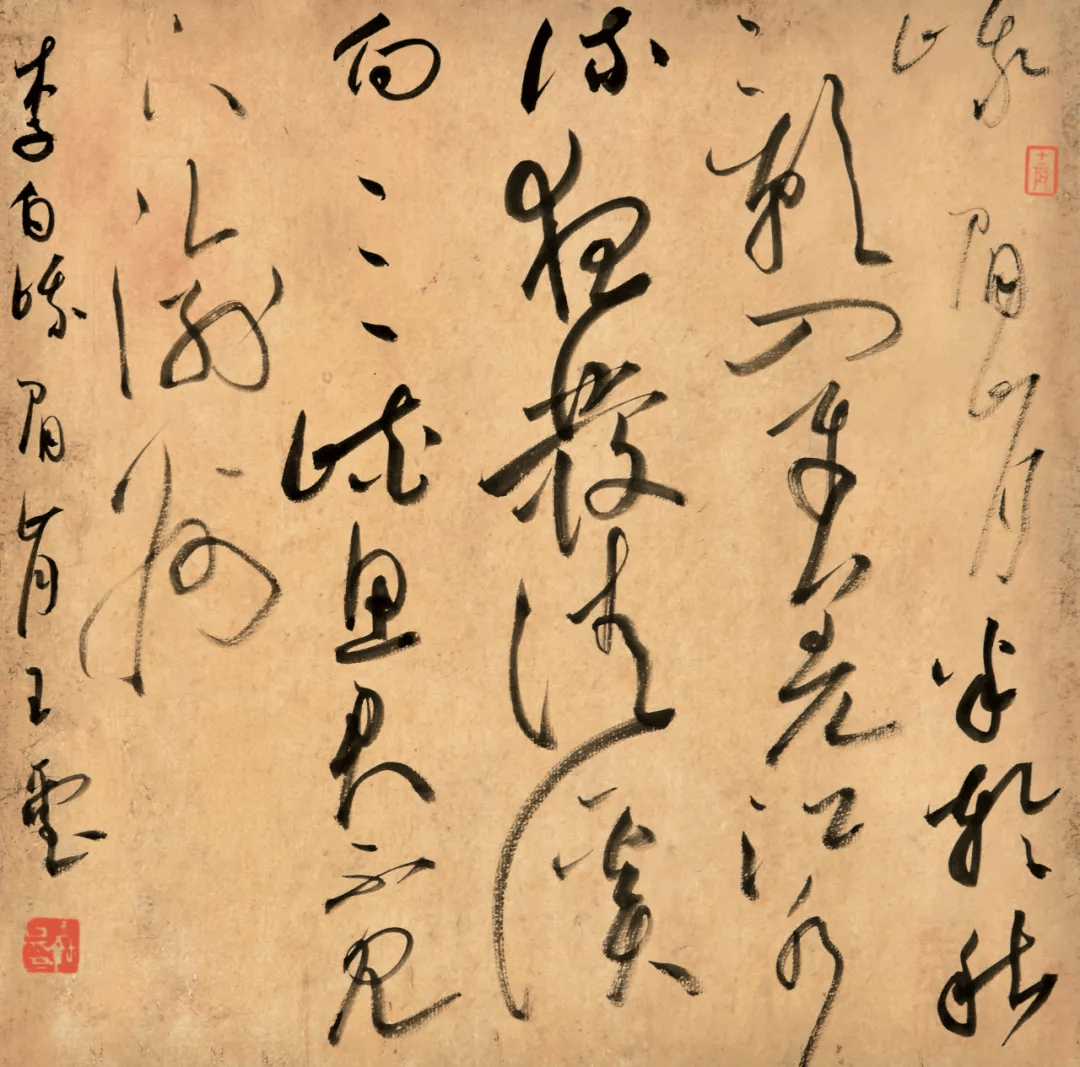 峨眉山月半輪秋
影入平羌江水
流夜發清溪
向三峽思君不見
下渝州
李白峨眉山月王